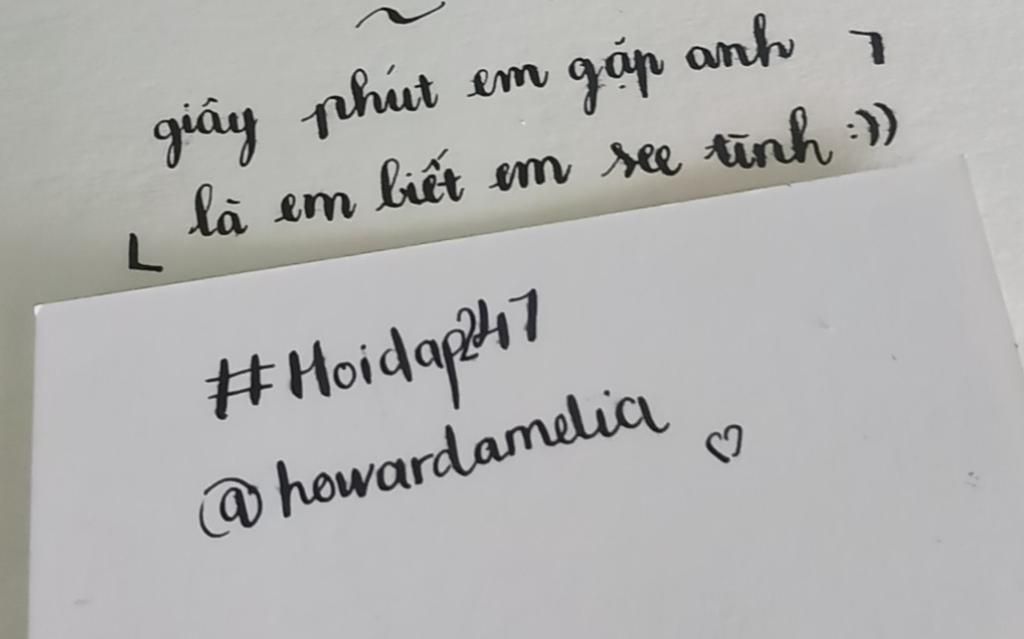 giây phút em gặp anh
là em biết em see tình :))
#Hoidap247
@howardamelia